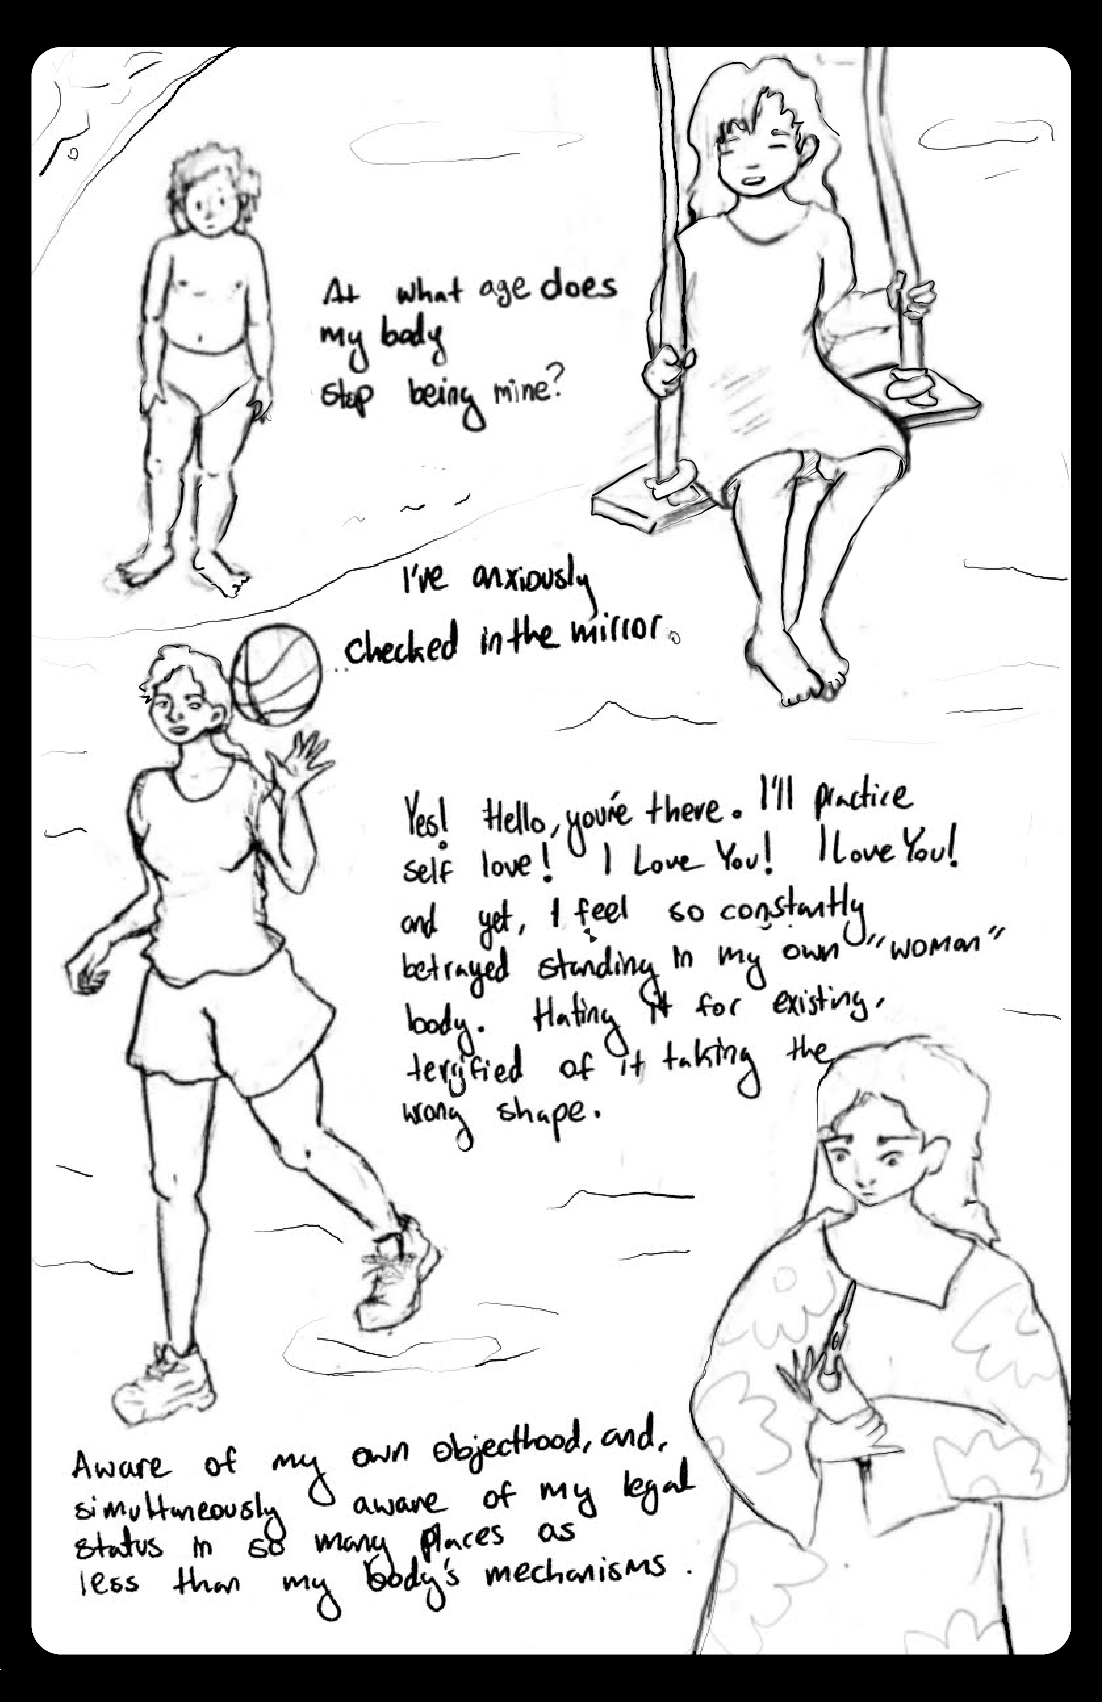 At what age does
my body
stop being mine?
I've anxiously
checked in the mirror.
Yes! Hello, you're there. I'll practice
self love! I Love You! I Love You!
and yet, I feel so constantly
betrayed standing in my own "woman"
body. Hating it for existing,
terrified of it taking the
wrong shape.
Aware of my own objecthood, and,
simultaneously aware of my legal
status in so many places as
less than my body's mechanisms.